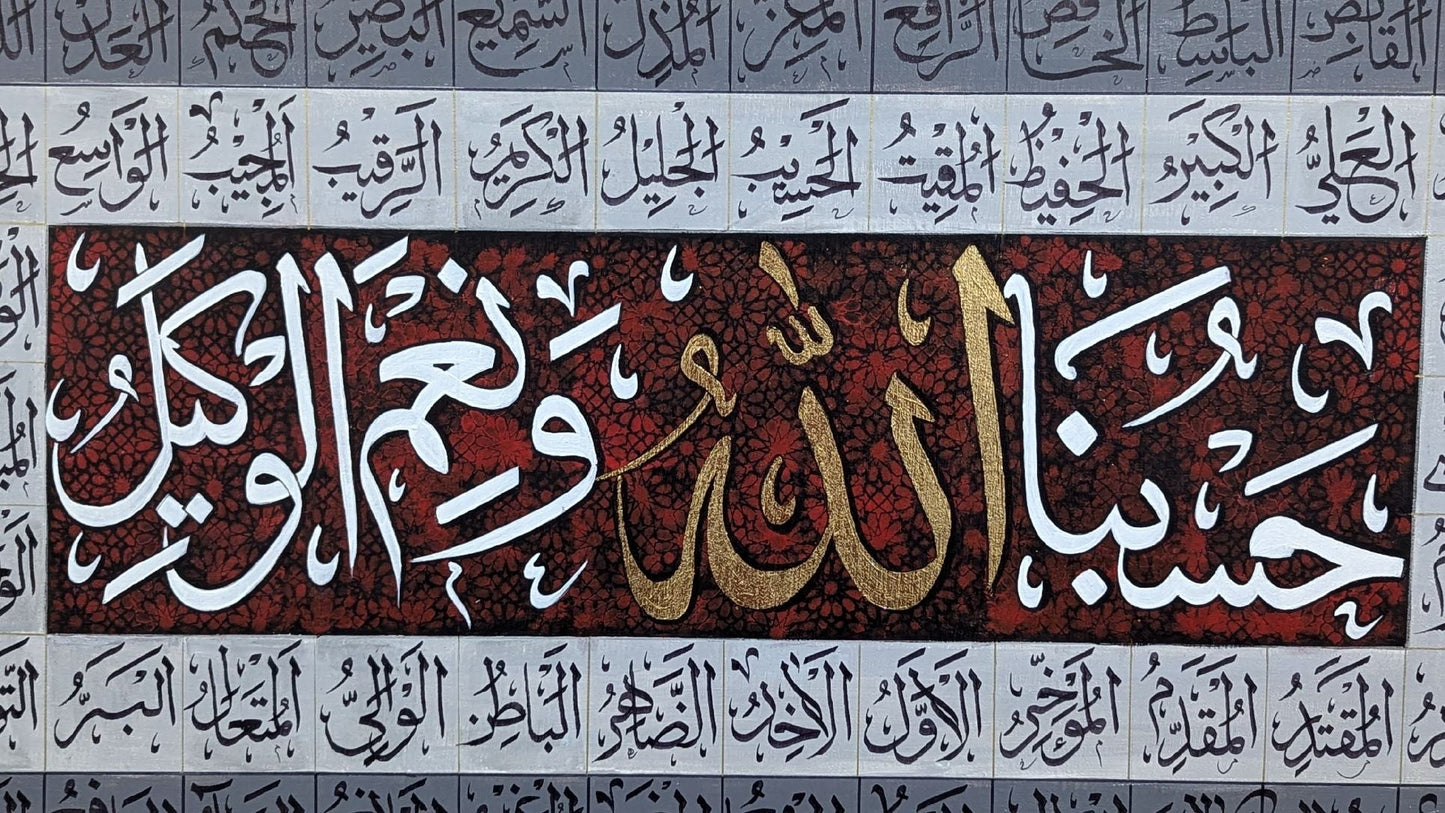 القابض الباسط الخافض الرافع المعز المذل السميع البصير الحكم العدل
العلي الكبير الحفيظ المقيت الحسيب الجليل الكريم الرقيب المجيب الواسع
حسبنا الله ونعم الوكيل
المقتدر المقدم المؤخر الأول الآخر الضاهر الباطن الوالي المتعال البر